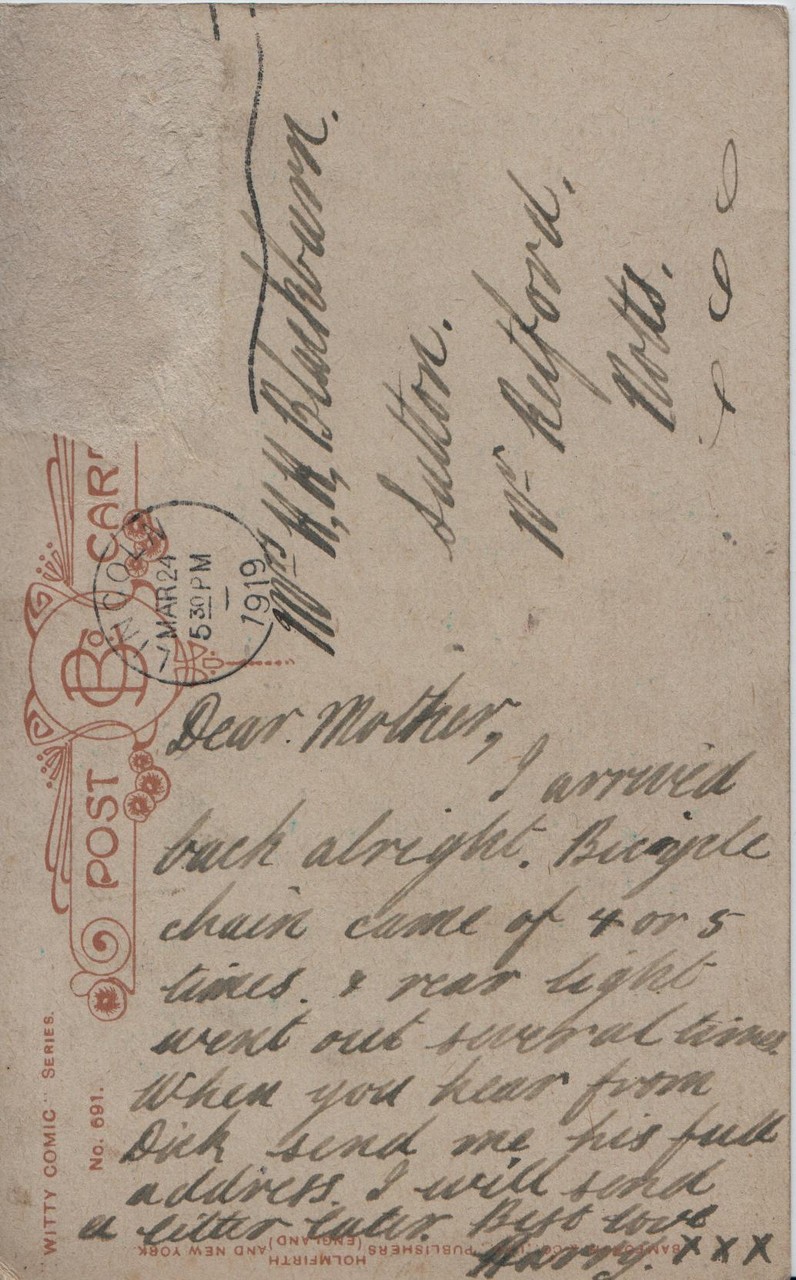 POST CARD
"WITTY COMIC" SERIES.
No. 691.
LINCOLN
MAR 24
5 30 PM
1919
Mrs H. H. Blackburn.
Sutton.
Nr Retford.
Notts.
Dear Mother,
I arrived
back alright. Bicycle
chain came of 4 or 5
times. & rear light
went out several times.
When you hear from
Dick send me his full
address. I will send
a letter later. Best love
Harry. X X X
BAMFORTH & CO. LTD., PUBLISHERS
HOLMFIRTH (ENGLAND) AND NEW YORK